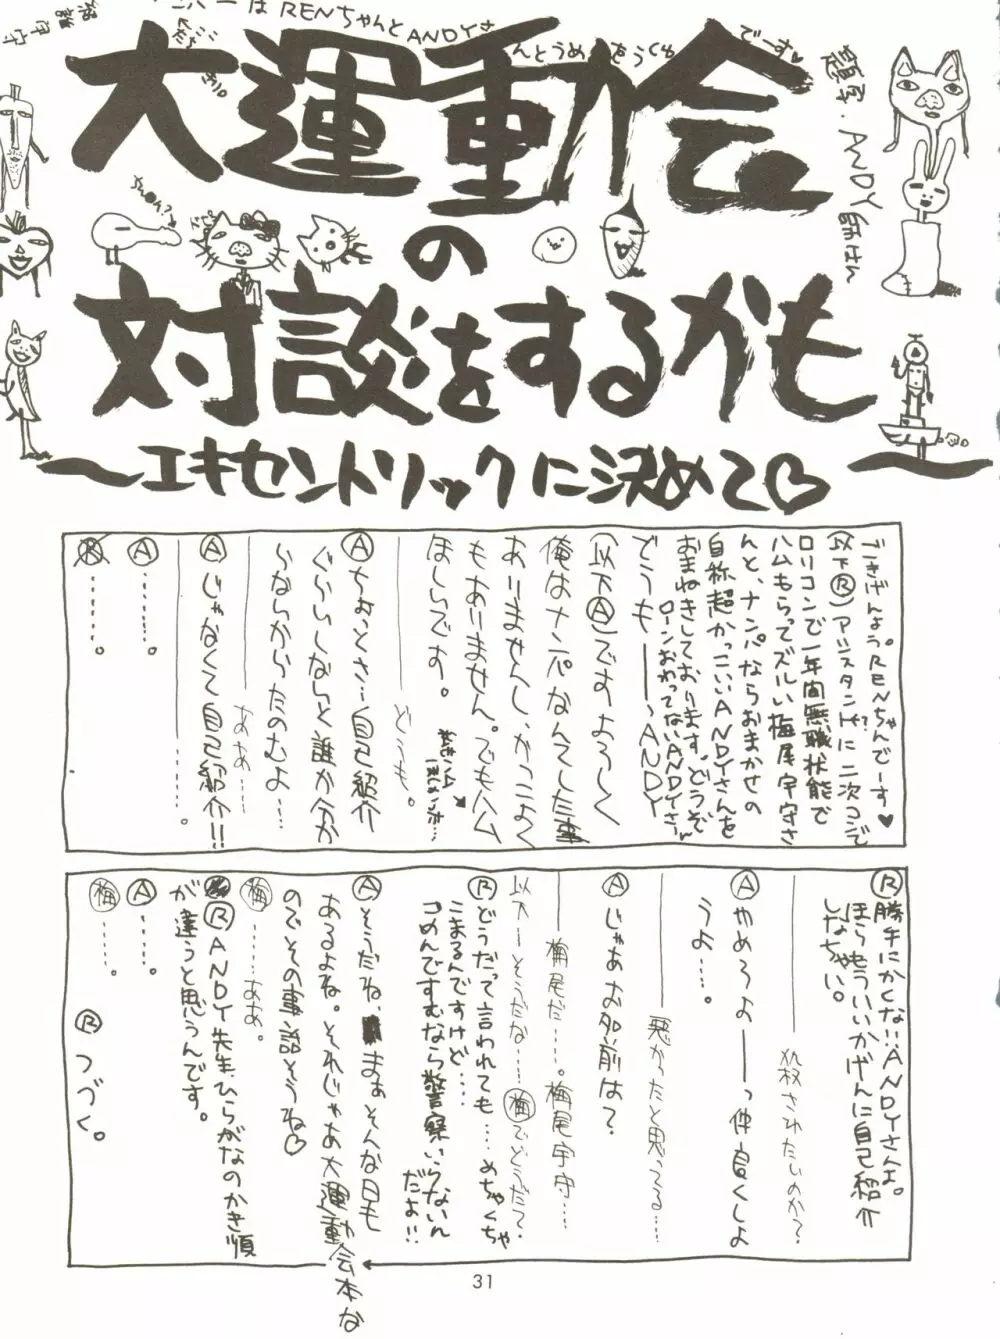 ーはRENちゃんとANDYさ
んとうめ
でーす♥
題字・ANDY師はん
大運動会
の
対談をするかも
〜エキセントリックに決めて♡〜
ごきげんよう。RENちゃんでーす♥
(以下Ⓡ)アシスタントに二次コンで
ロリコンで一年間無職状態で
ハムもらってズルい梅尾宇守さ
んと、ナンパならおまかせの
自称超かっこいいANDYさんを
おまねきしております。どうぞ
ローンおわってないANDYさん
でうも――――ANDY
(以下Ⓐ)ですよろしく
俺はナンパなんてした事
ありませんし、かっこよく
もありません。でもハム
ほしいです。
―――――どうも。
Ⓐちょっとさ…自己紹介
ぐらいしないと誰か分か
らないからたのむよ…
―――――ああ…
Ⓐじゃなくて自己紹介!!
―――――…………。
Ⓐ………。
Ⓡ………。
Ⓡ勝手にかくない:ANDYさんよ。
ほらもういいかげんに自己紹介
しなちい。
―――――殺されたいのか?
Ⓐやめろよ――――っ仲良くしよ
うよ……。
―――――悪かったと思ってる…
Ⓐじゃあお前は?
――梅尾だ……。梅尾宇守…
以下ーそうだな……㊍でどうだ?
Ⓡどうだって言われても……めちゃくちゃ
こまるんですけど……
ごめんですむなら警察いらないん
だよ!!
Ⓐそうだね、まぁそんな日も
あるよね。それじゃあ大運動会本な
のでその事話そうね♡
梅……ああ。
ⓇANDY先生ひらがなのかき順
が違うと思うんです。
Ⓐ……。
梅……。
Ⓡつづく。
31